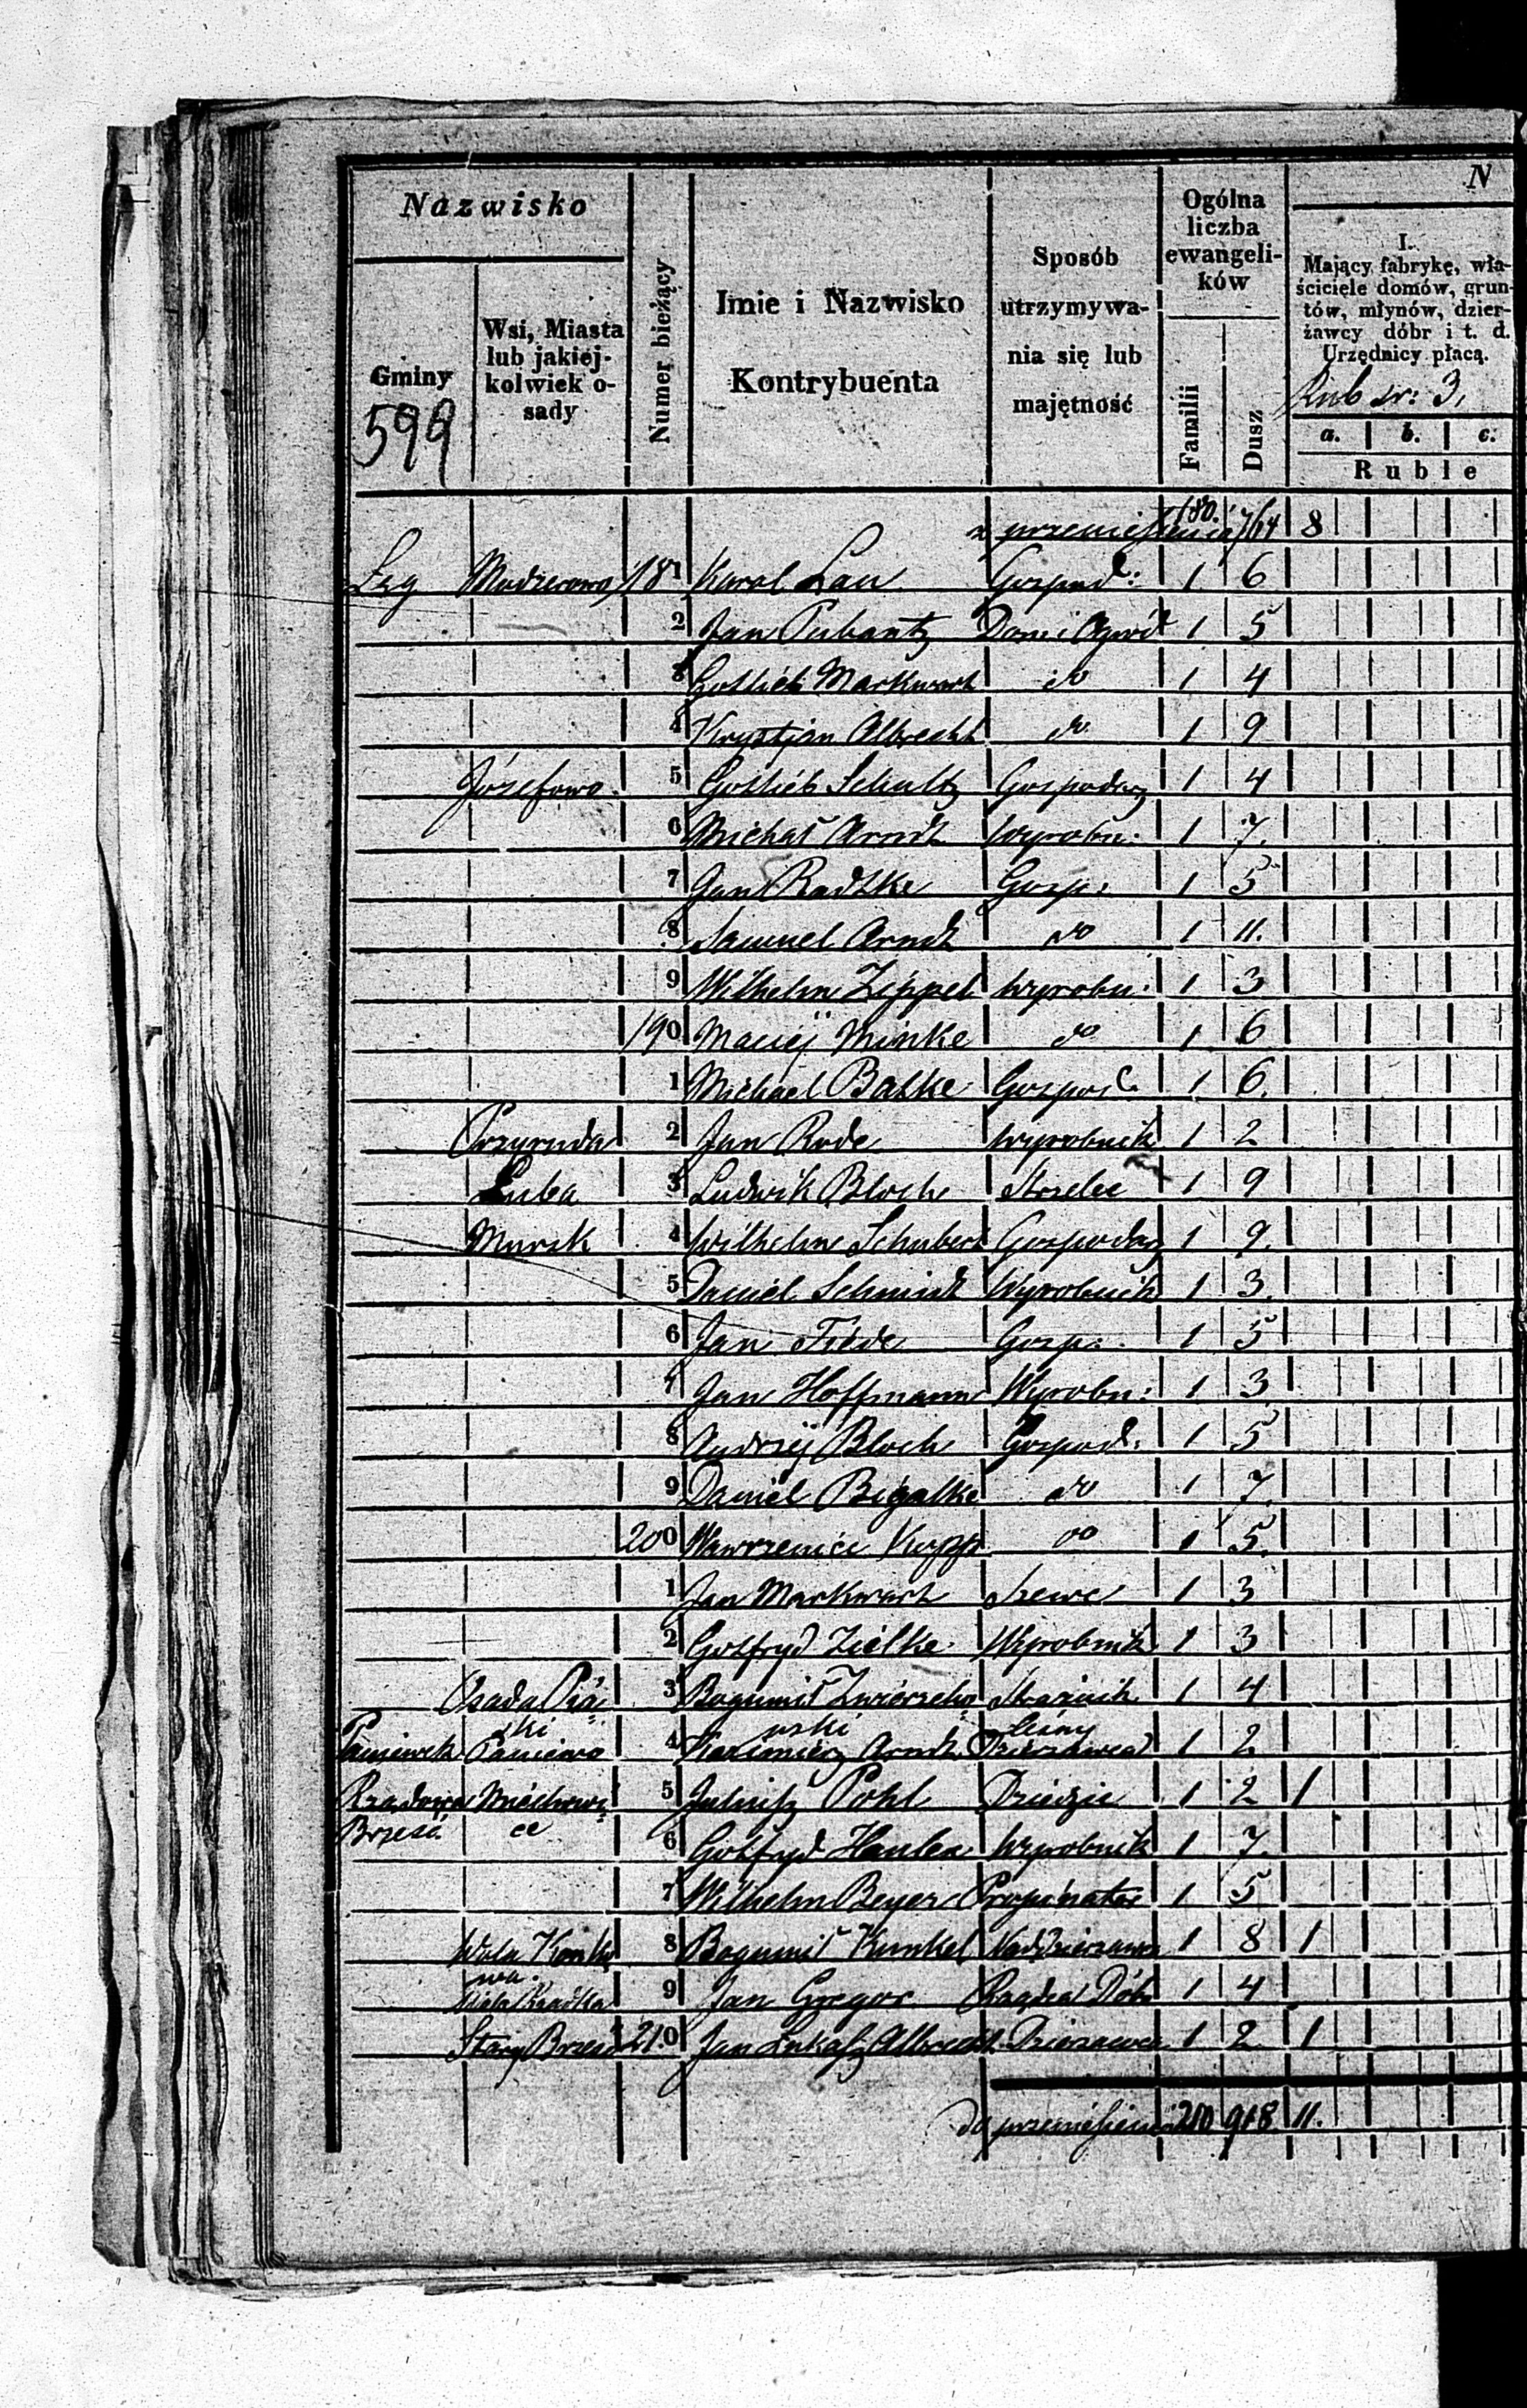 Nazwisko
Gminy
Wsi, Miasta
lub jakiej-
kolwiek o-
sady
Numer bieżący
Imie i Nazwisko
Kontrybuenta
Sposób
utrzymywa-
nia się lub
majętność
Ogólna
liczba
ewangeli-
ków
Familii
Dusz
N
I.
Mający fabrykę, wła-
ścicięle domów, grun-
tów, młynów, dzier-
żawcy dóbr i t. d.
Urzędnicy płacą.
Rub sr: 3,
a. b. c.
Ruble
599
z przeniesienia 180. 764 8
Łęg 181 Karol Lau Gospod: 1 6
2 Jan 1 5
3 Gottlieb Markwart do 1 4
4 Krystjan Albrecht do 1 9
Józefowo 5 Gottlieb Schultz Gospodarz 1 4
6 Michał Arndt Wyrobn: 1 7.
7 Jan Radtke Gosp: 1 5
8 Samuel Arndt do 1 11.
9 Wilhelm Zippel Wyrobn: 1 3
190 Maciej Minke do 1 6
1 Michael Batke Gospod. 1 6.
2 Jan Rode Wyrobnik 1 2
Łuba 3 Ludwik Bloch Strzelec 1 9
Mursk 4 Wilhelm Schubert Gospodarz 1 9.
5 Daniel Schmidt Wyrobnik 1 3.
6 Jan Tiede Gosp: 1 5
7 Jan Hoffmann Wyrobn: 1 3
8 Andrzej Bloch Gospod: 1 5
9 Daniel Bigalke do 1 7.
200 Wawrzeniec Kopp do 1 5.
1 Jan Markwart Szewc 1 3
2 Gotfryd Zielke Wyrobnik 1 3
Osada 3 Bogumił Zwierzcho- Strażnik 1 4
wski leśny
Paniewek Paniewo 4 Kazimierz Arndt Dzierżawca 1 2
Rządowa 5 Juliusz Pohl Dziedzic 1 2 1
Brzesć ce 6 Gotfryd Wyrobnik 1 7.
7 Wilhelm Beyer Propinator 1 5
Wola 8 Bogumił Kunkel 1 8 1
wa. 9 Jan Gregor Rządca Dóbr 1 4
Stary Brześć 210 Jan Łukasz Albrecht Dzierżawca 1 2 1
do przeniesienia 210 918 11.